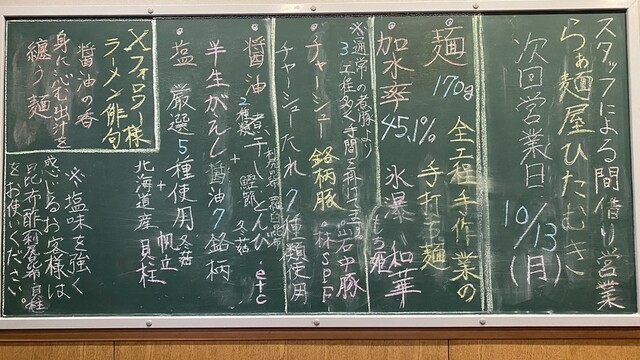 スタッフによる間借り営業
らぁ麺屋ひたむき
次回営業日 10/13(月)
全工程手作業の
手打ち麺
麺 170g
加水率 45.1% 氷瀑 和華
※通常の煮豚より
3工程多く手間を
チャーシュー 銘柄豚 石中豚 林SPF
チャーシューたれ 7種類使用
醤油 煮干し とんび etc
2種類 + 鰹節 冬菇
利尻昆布 羅臼昆布
半生がえし 醤油7銘柄
塩 厳選5種使用 冬菇 帆立
+
北海道産 貝柱
Xフォロワー様
ラーメン俳句
醤油の香
身に沁む出汁を
纏う麺
※塩味を強く
感じるお客様は
昆布酢(利尻昆布 貝柱)
をお使いください。